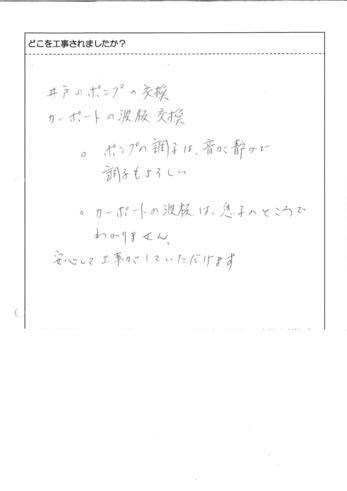 どこを工事されましたか？
井戸のポンプの交換
カーポートの波板交換
○ ポンプの調子は、音が静かで
調子もよろしい
○ カーポートの波板は、息子のところで
わかりません。
安心して工事がしていただけます